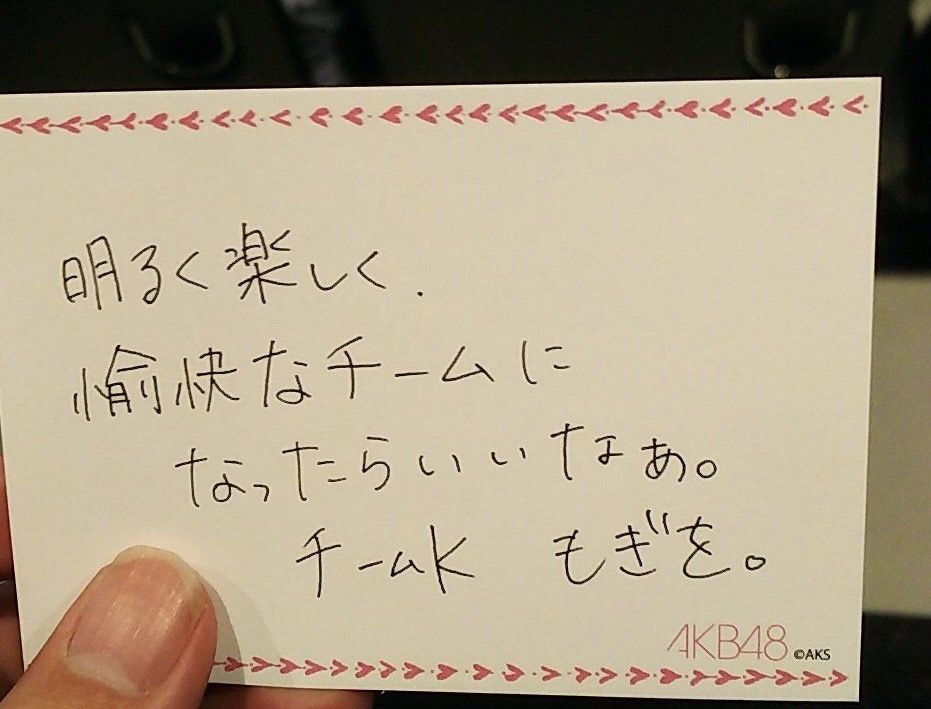 明るく楽しく.
愉快なチームに
なったらいいなぁ。
チームK もぎを。
AKB48 ©AKS